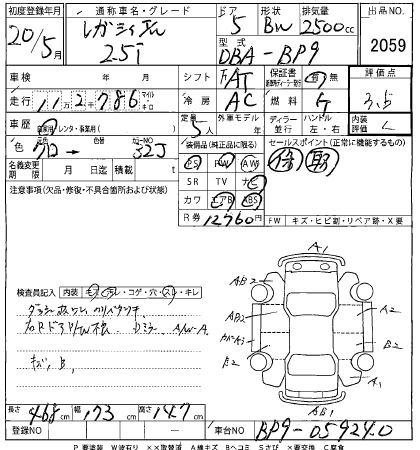 初度登録年月 通称車名・グレード ドア 形状 排気量 出品NO.
20/5月 レガシィ 5 BW 2500cc
2.5i 型式 2059
DBA-BP9
車検 年 月 シフト FAT 保証書 有 無 評価点
走行 11万2千786 マイル キロ 冷房 AC 燃料 G 3.5
車歴 自家用 レンタ・事業用( ) 定員 5人 外車モデル 年 ディーラー 並行 ハンドル 左・右 内装評価
色 クロ→ 色替 カラーNO 32J 装備品(純正品に限る) セールスポイント(正常に機能するもの)
名義変更期限 月 日迄 積載 t PS PW AW
注意事項(欠品・修復・不具合箇所および状態) SR TV ナビ
カワ エアB ABS
R券 12760円 FW キズ・ヒビ割・リペア跡・X要
A1
AB2
検査員記入 内装 キズ・汚レ・コゲ・穴・スレ・キレ
A2
AB2
B2
B2
キズ、B、
A1
AB1
長さ 468cm 幅 173cm 高さ 147cm
登録NO 車台NO BP9-059240
P要塗装 W波有り XX取替済 A線キズ Bヘコミ Sさび X要交換 C腐食